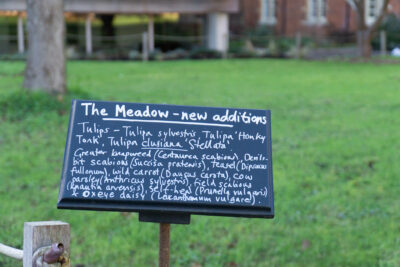 The Meadow - new additions
Tulips - Tulipa sylvestris, Tulipa 'Honky
Tonk', Tulipa clusiana 'Stellata'
Greater knapweed (Centaurea scabiosa), Devils-
bit scabious (Succisa pratensis), Teasel (Dipsacus
fullonum), wild carrot (Daucus carota), cow
parsley (Anthriscus sylvestris), field scabious
(Knautia arvensis), self-heal (Prunella vulgaris)
+ Oxeye daisy (Leucanthemum vulgare).